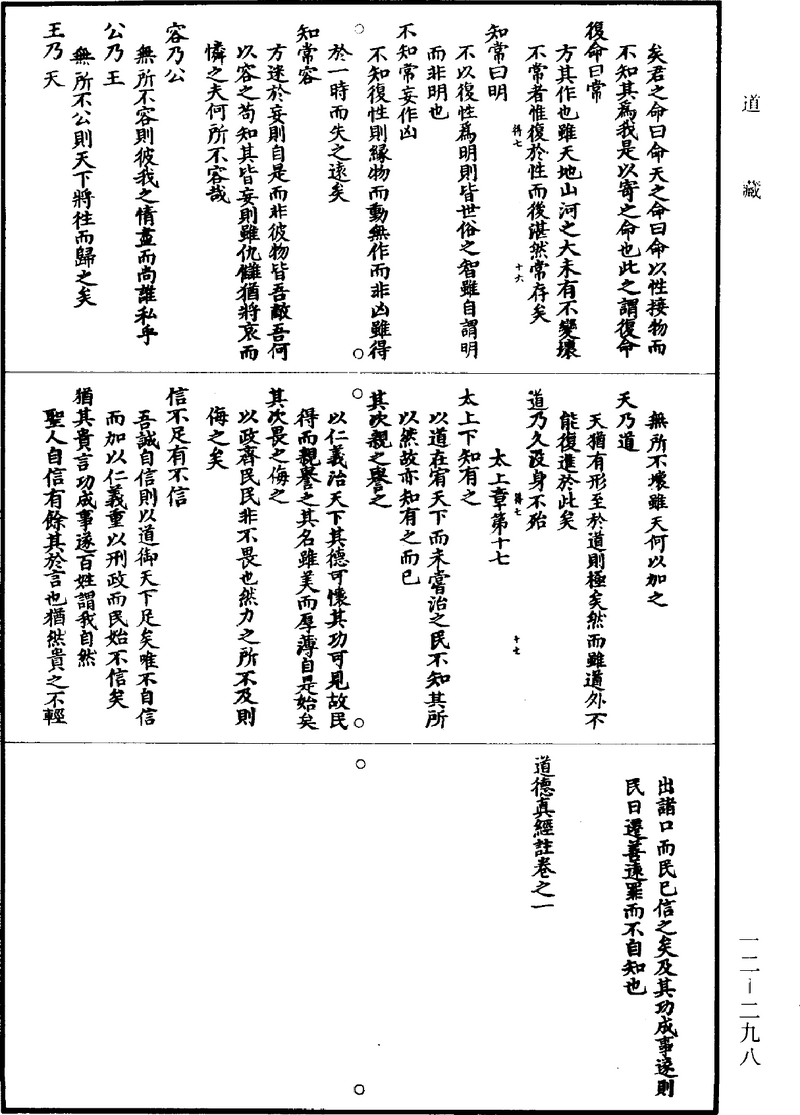 道藏
矣君之命曰命天之命曰命以性接物而
不知其為我是以寄之命也此之謂復命
復命曰常
方其作也雖天地山河之大未有不變壞
不常者惟復於性而後湛然常存矣
得七
十六
知常曰明
不以復性為明則皆世俗之智雖自謂明
而非明也
不知常妄作凶
不知復性則緣物而動無作而非凶雖得
於一時而失之遠矣
知常容
方迷於妄則自是而非彼物皆吾敵吾何
以容之苟知其皆妄則雖仇讎猶將哀而
憐之夫何所不容哉
容乃公
無所不容則彼我之情盡而尚誰私乎
公乃王
無所不公則天下將往而歸之矣
王乃天
無所不壞雖天何以加之
天乃道
天猶有形至於道則極矣然而雖道外不
能復進於此矣
道乃久沒身不殆
得七
十七
太上章第十七
太上下知有之
以道在宥天下而未嘗治之民不知其所
以然故亦知有之而已
其次親之譽之
以仁義治天下其德可懷其功可見故民
得而親譽之其名雖美而厚薄自是始矣
其次畏之侮之
以政齊民民非不畏也然力之所不及則
侮之矣
信不足有不信
吾誠自信則以道御天下足矣唯不自信
而加以仁義重以刑政而民始不信矣
猶其貴言功成事遂百姓謂我自然
聖人自信有餘其於言也猶然貴之不輕
出諸口而民已信之矣及其功成事遂則
民日遷善遠罪而不自知也
道德真經註卷之一
一二—二九八